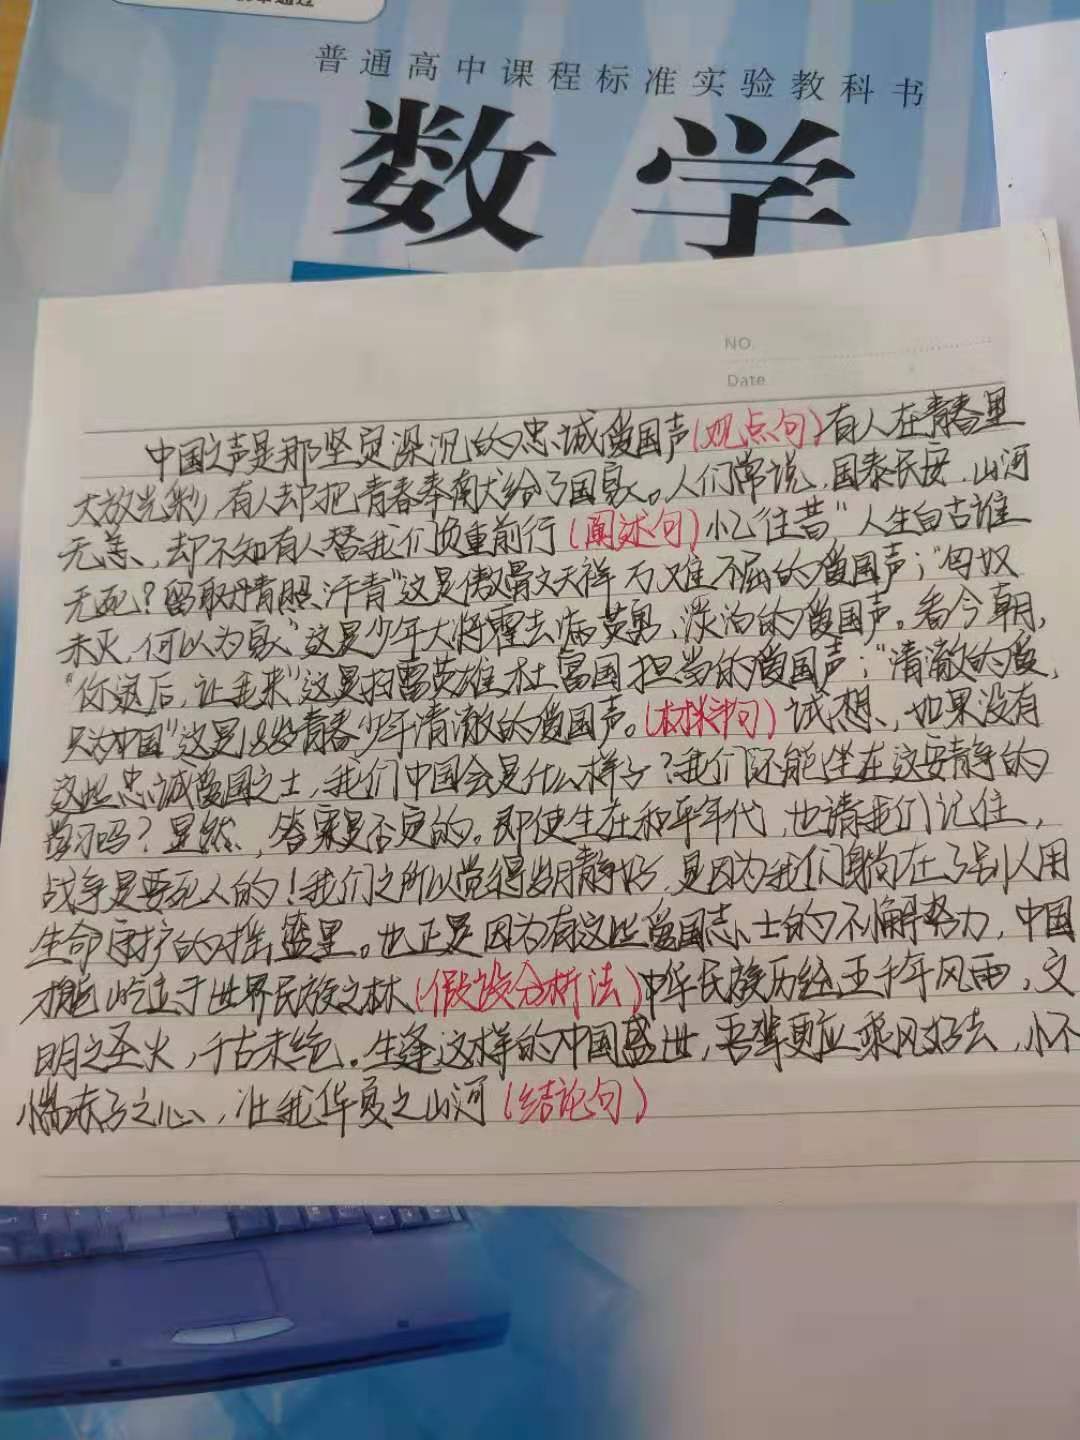 普通高中课程标准实验教科书
数学
NO.
Date
中国之声是那坚定深沉的忠诚爱国声(观点句)有人在青春里
大放光彩,有人却把青春奉献给了国家。人们常说,国泰民安,山河
无恙,却不知有人替我们负重前行(阐述句)忆往昔"人生自古谁
无死?留取丹情照汗青"这是傲骨文天祥万难不屈的爱国声;"匈奴
未灭,何以为家"这是少年大将霍去病英勇、淡泊的爱国声。看今朝,
"你退后,让我来"这是扫雷英雄杜富国担当的爱国声;"清澈的爱,
只为中国"这是18岁青春少年清澈的爱国声。(材料句)试想,如果没有
这些忠诚爱国之士,我们中国会是什么样子?我们还能坐在这安静的
学习吗?显然,答案是否定的。即使生在和平年代,也请我们记住,
战争是要死人的!我们之所以觉得岁月静好,是因为我们身尚在了别人用
生命守护的摇篮里。也正是因为有这些爱国志士的不懈努力,中国
才能屹立于世界民族之林(假设分析法)中华民族历经五千年风雨,文
明之圣火,千古未绝。生逢这样的中国盛世,吾辈更应乘风好去,怀
揣赤子之心,壮我华夏之山河(结论句)